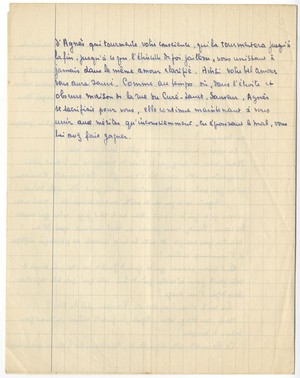 d'Agnès qui tourmente votre conscience, qui la tourmentera jusqu'à
la fin, jusqu'à ce que l'étincelle de foi jaillisse, vous unissant à
jamais dans le même amour clarifié. Ainsi votre bel amour
sera sauvé. Comme au temps où, dans l'étroite et
obscure maison de la rue du Curé-Saint-Sauveur, Agnès
se sacrifiait pour vous, elle continue maintenant à vous
unir aux mérites qu'inconsciemment, en épousant le mal, vous
lui avez fait gagner.